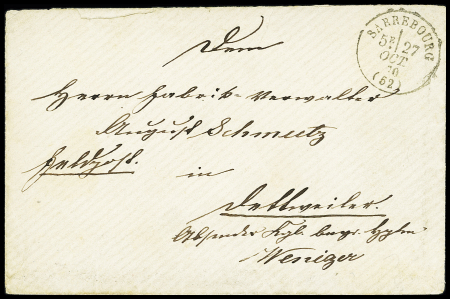 Dem
SARREBOURG
5E 27
OCT
70
(52)
Herrn Fabrik-Verwalter
August Schmeetz
Feldpost.
in
Dettweiler.
Absender Kgl. bayr.
Weniger